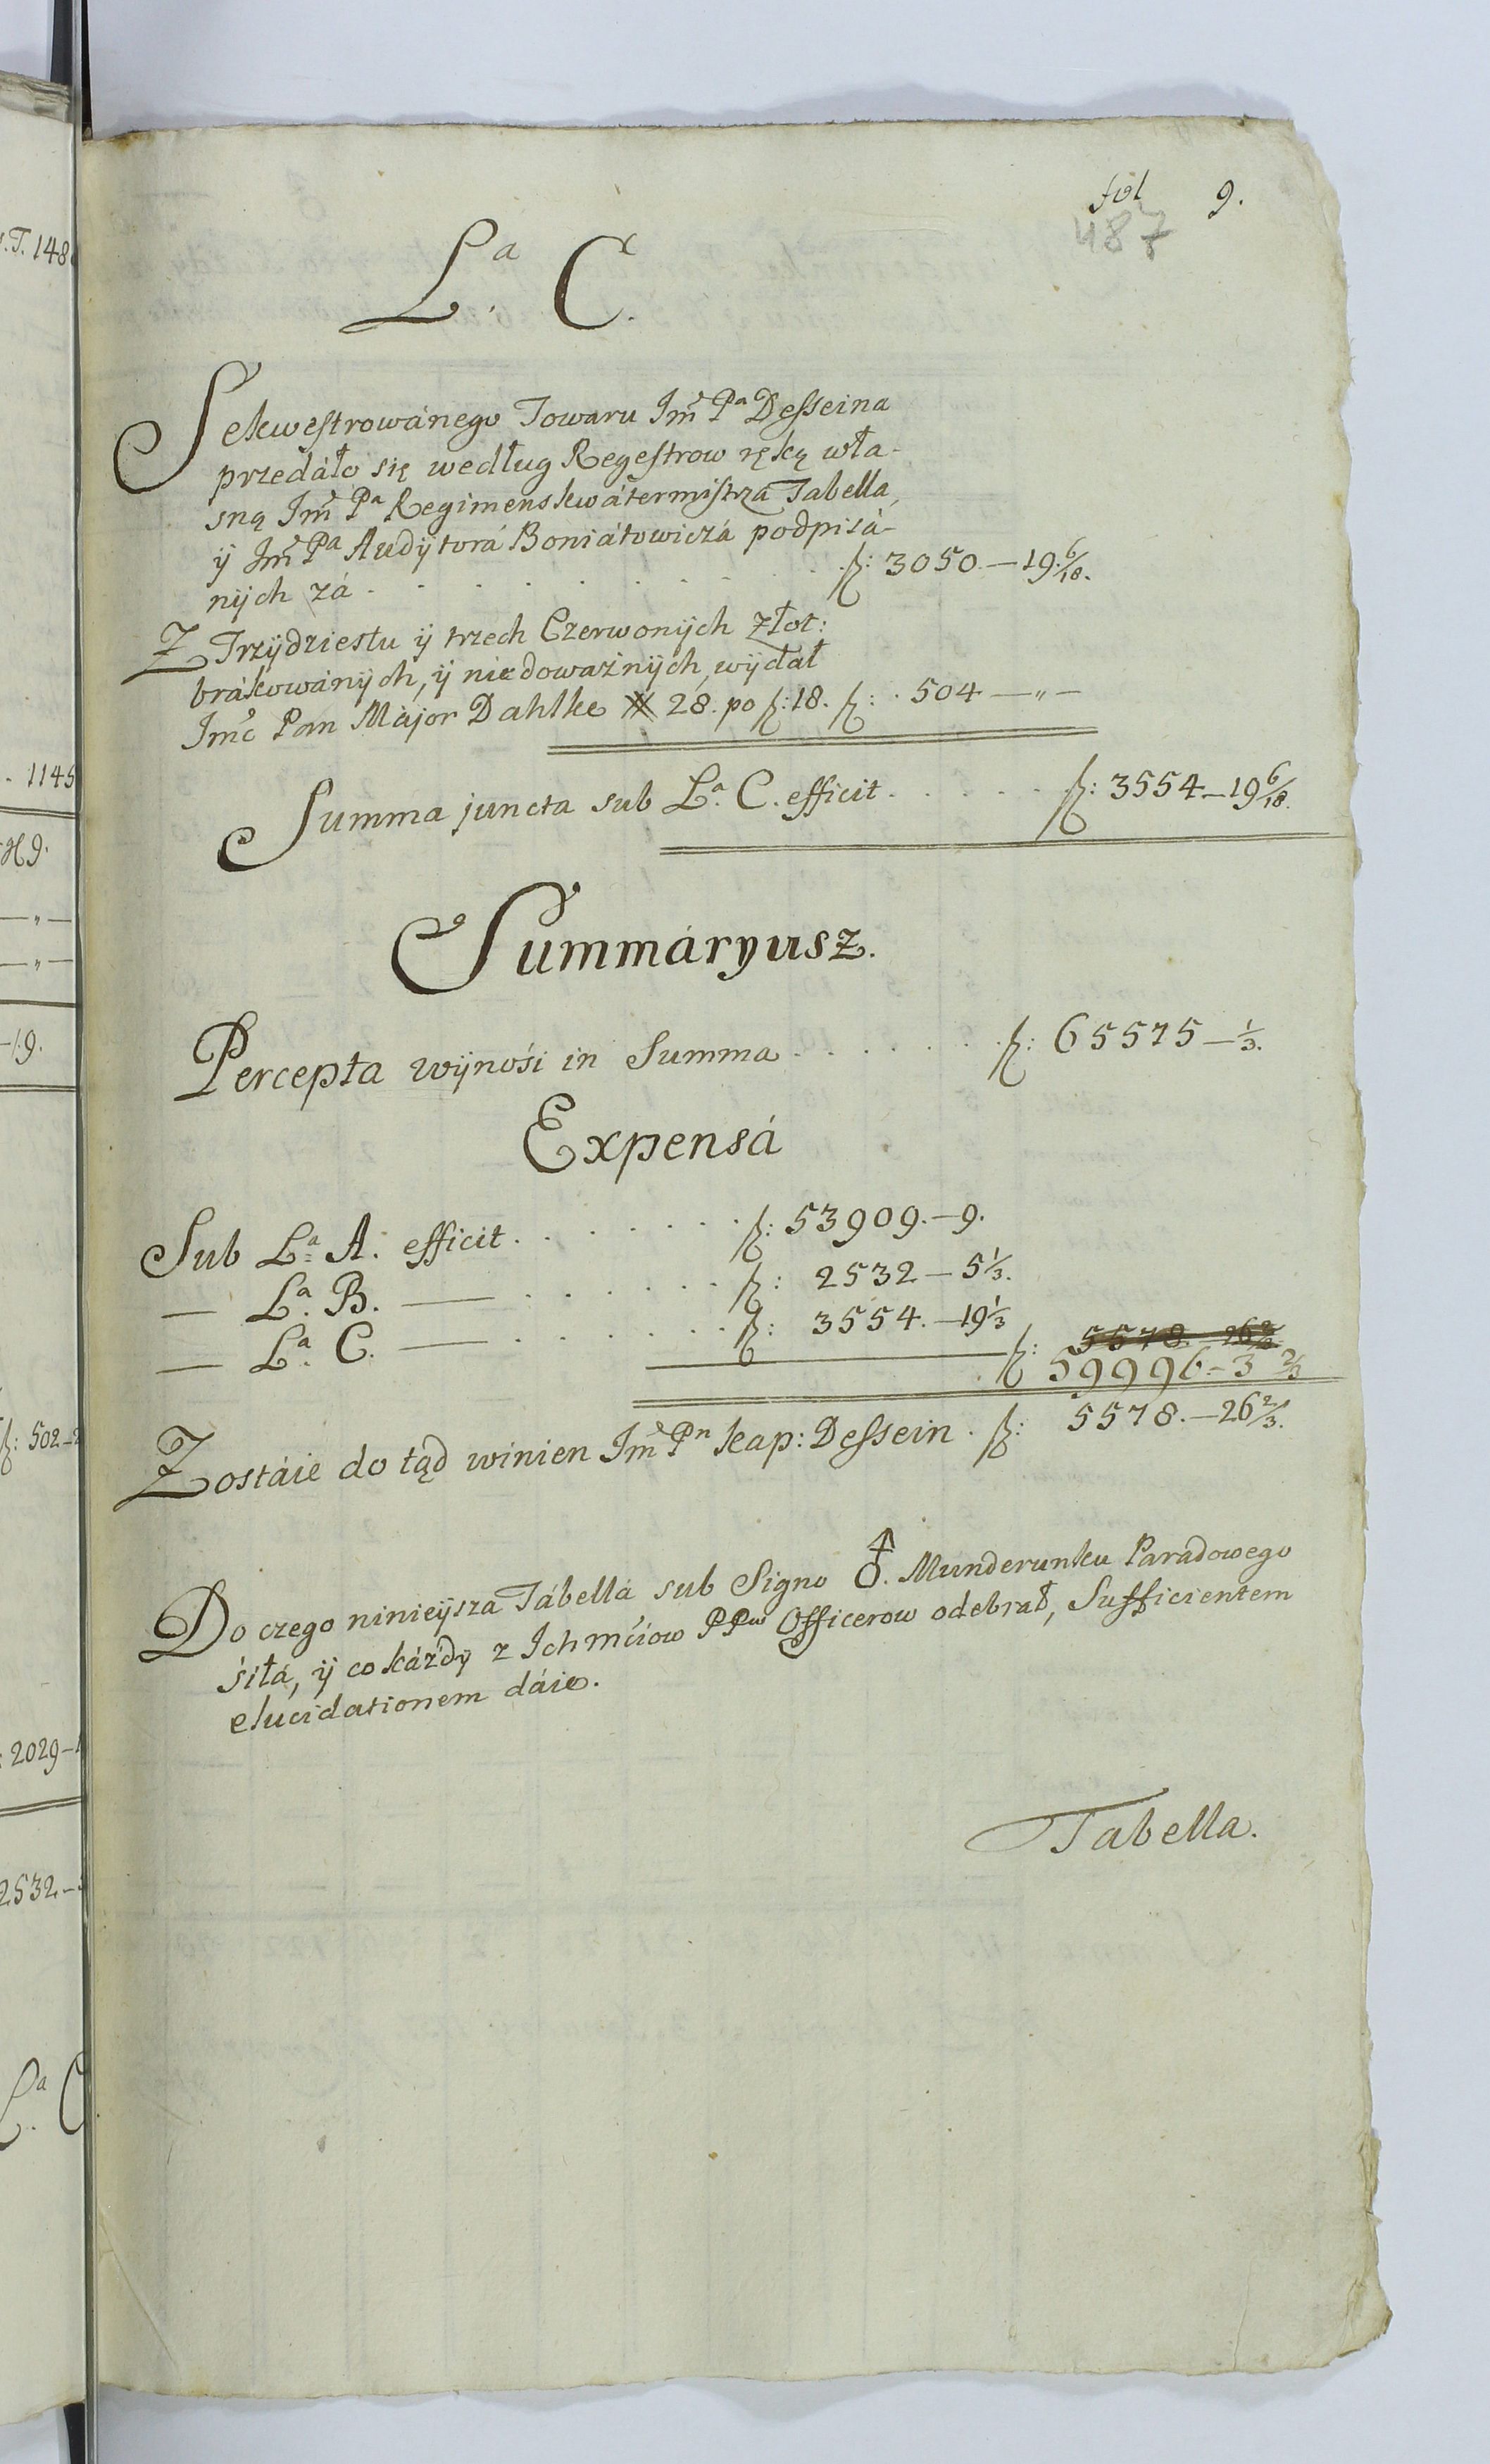 fol 9.
487
Lª C.
Sekwestrowánego Towaru Jmc̃ Pª Desseina
przedáło się według Regestrow ręką wła-
sną Jmc̃ Pª Regimenskwátermistrza Tabella,
ÿ Jmc̃ Pª Audÿtorá Boniátowiczá podpisá-
nÿch zá . . . . . . . . . . . . f: 3050.—19.6/18.
Z Trzÿdziestu ÿ trzech Czerwonÿch Złot:
brákowánÿch, ÿ niedoważnÿch, wÿdał
Jmć Pan Májor Dahlke # 28. po f: 18. f: . 504—"—
Summa juncta sub Lª. C. efficit . . . . . f: 3554—19 6/18.
Summáryusz.
Percepta wÿnośi in Summa . . . . . . . f: 65575—1/3.
Expensá
Sub Lª. A. efficit . . . . . . . f: 53909.—9.
— Lª. B. — . . . . . . f: 2532—5 1/3.
— Lª. C. — . . . . . . f: 3554.—19 1/3
f: 5578—26 2/3
59996—3 2/3
Zostáie do tąd winien Jmc̃ Pn kap: Dessein . f: 5578.—26 2/3.
Do czego ninieÿsza Tábellá sub Signo ♁. Munderunku Paradowego
śiłá, ÿ co káżdy z Jchmćiow PPow Officerow odebrał, Sufficientem
elucidationem dáie.
Tabella.
.T. 148
. 1145
9.
—"—
—"—
—/.9.
f: 502—2
: 2029—1
2532—
Lª C